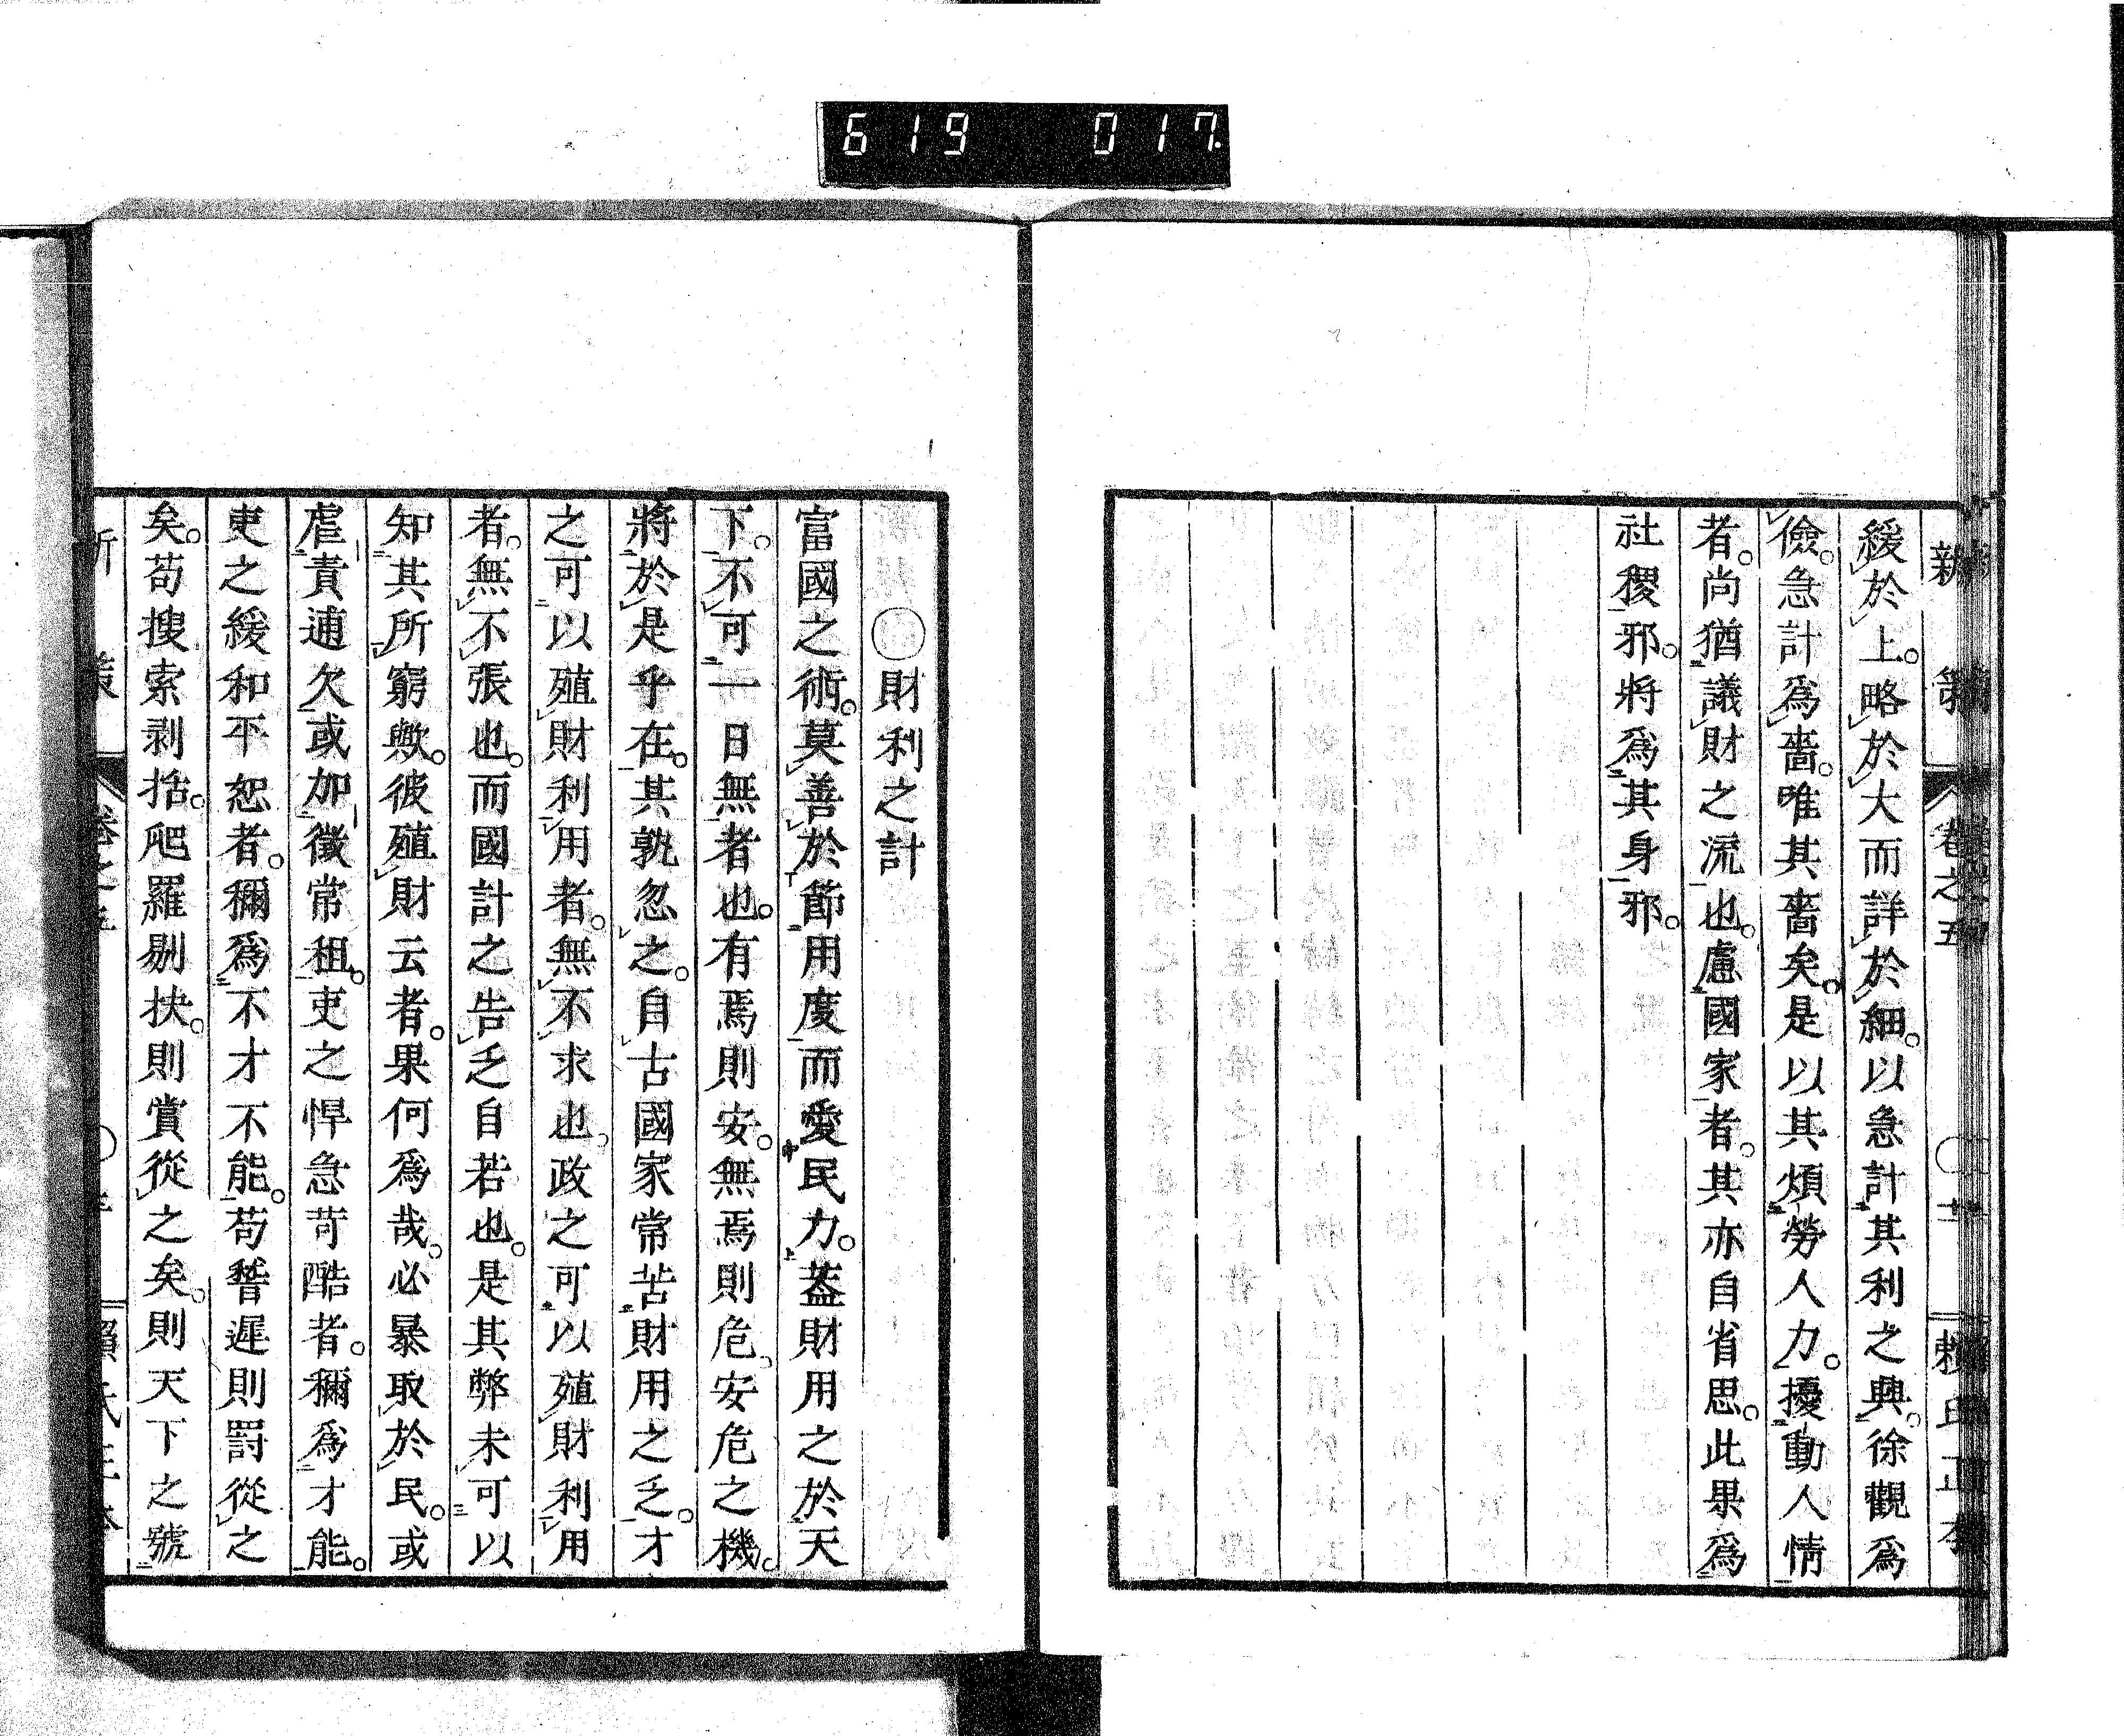 619 017
新策 卷之五 賴氏正本
緩於上。略於大而詳於細。以急計其利之興。徐觀爲
儉。急計爲嗇。唯其嗇矣。是以其煩勞人力。擾動人情
者。尚猶議財之流也。慮國家者。其亦自省思。此果爲
社稷邪。將爲其身邪。
○財利之計
富國之術。莫善於節用度而愛民力。蓋財用之於天
下。不可一日無者也。有焉則安。無焉則危。安危之機。
將於是乎在。其孰忽之。自古國家常苦財用之乏。才
之可以殖財利用者。無不求也。政之可以殖財利用
者。無不張也。而國計之告乏自若也。是其弊未可以
知其所窮歟。彼殖財云者。果何爲哉。必暴取於民。或
虐責逋欠。或加徵常租。吏之悍急苛酷者。稱爲才能。
吏之緩和平恕者。稱爲不才不能。苟瞀遲則罰從之
矣。苟搜索剥括。爬羅剔抉。則賞從之矣。則天下之號